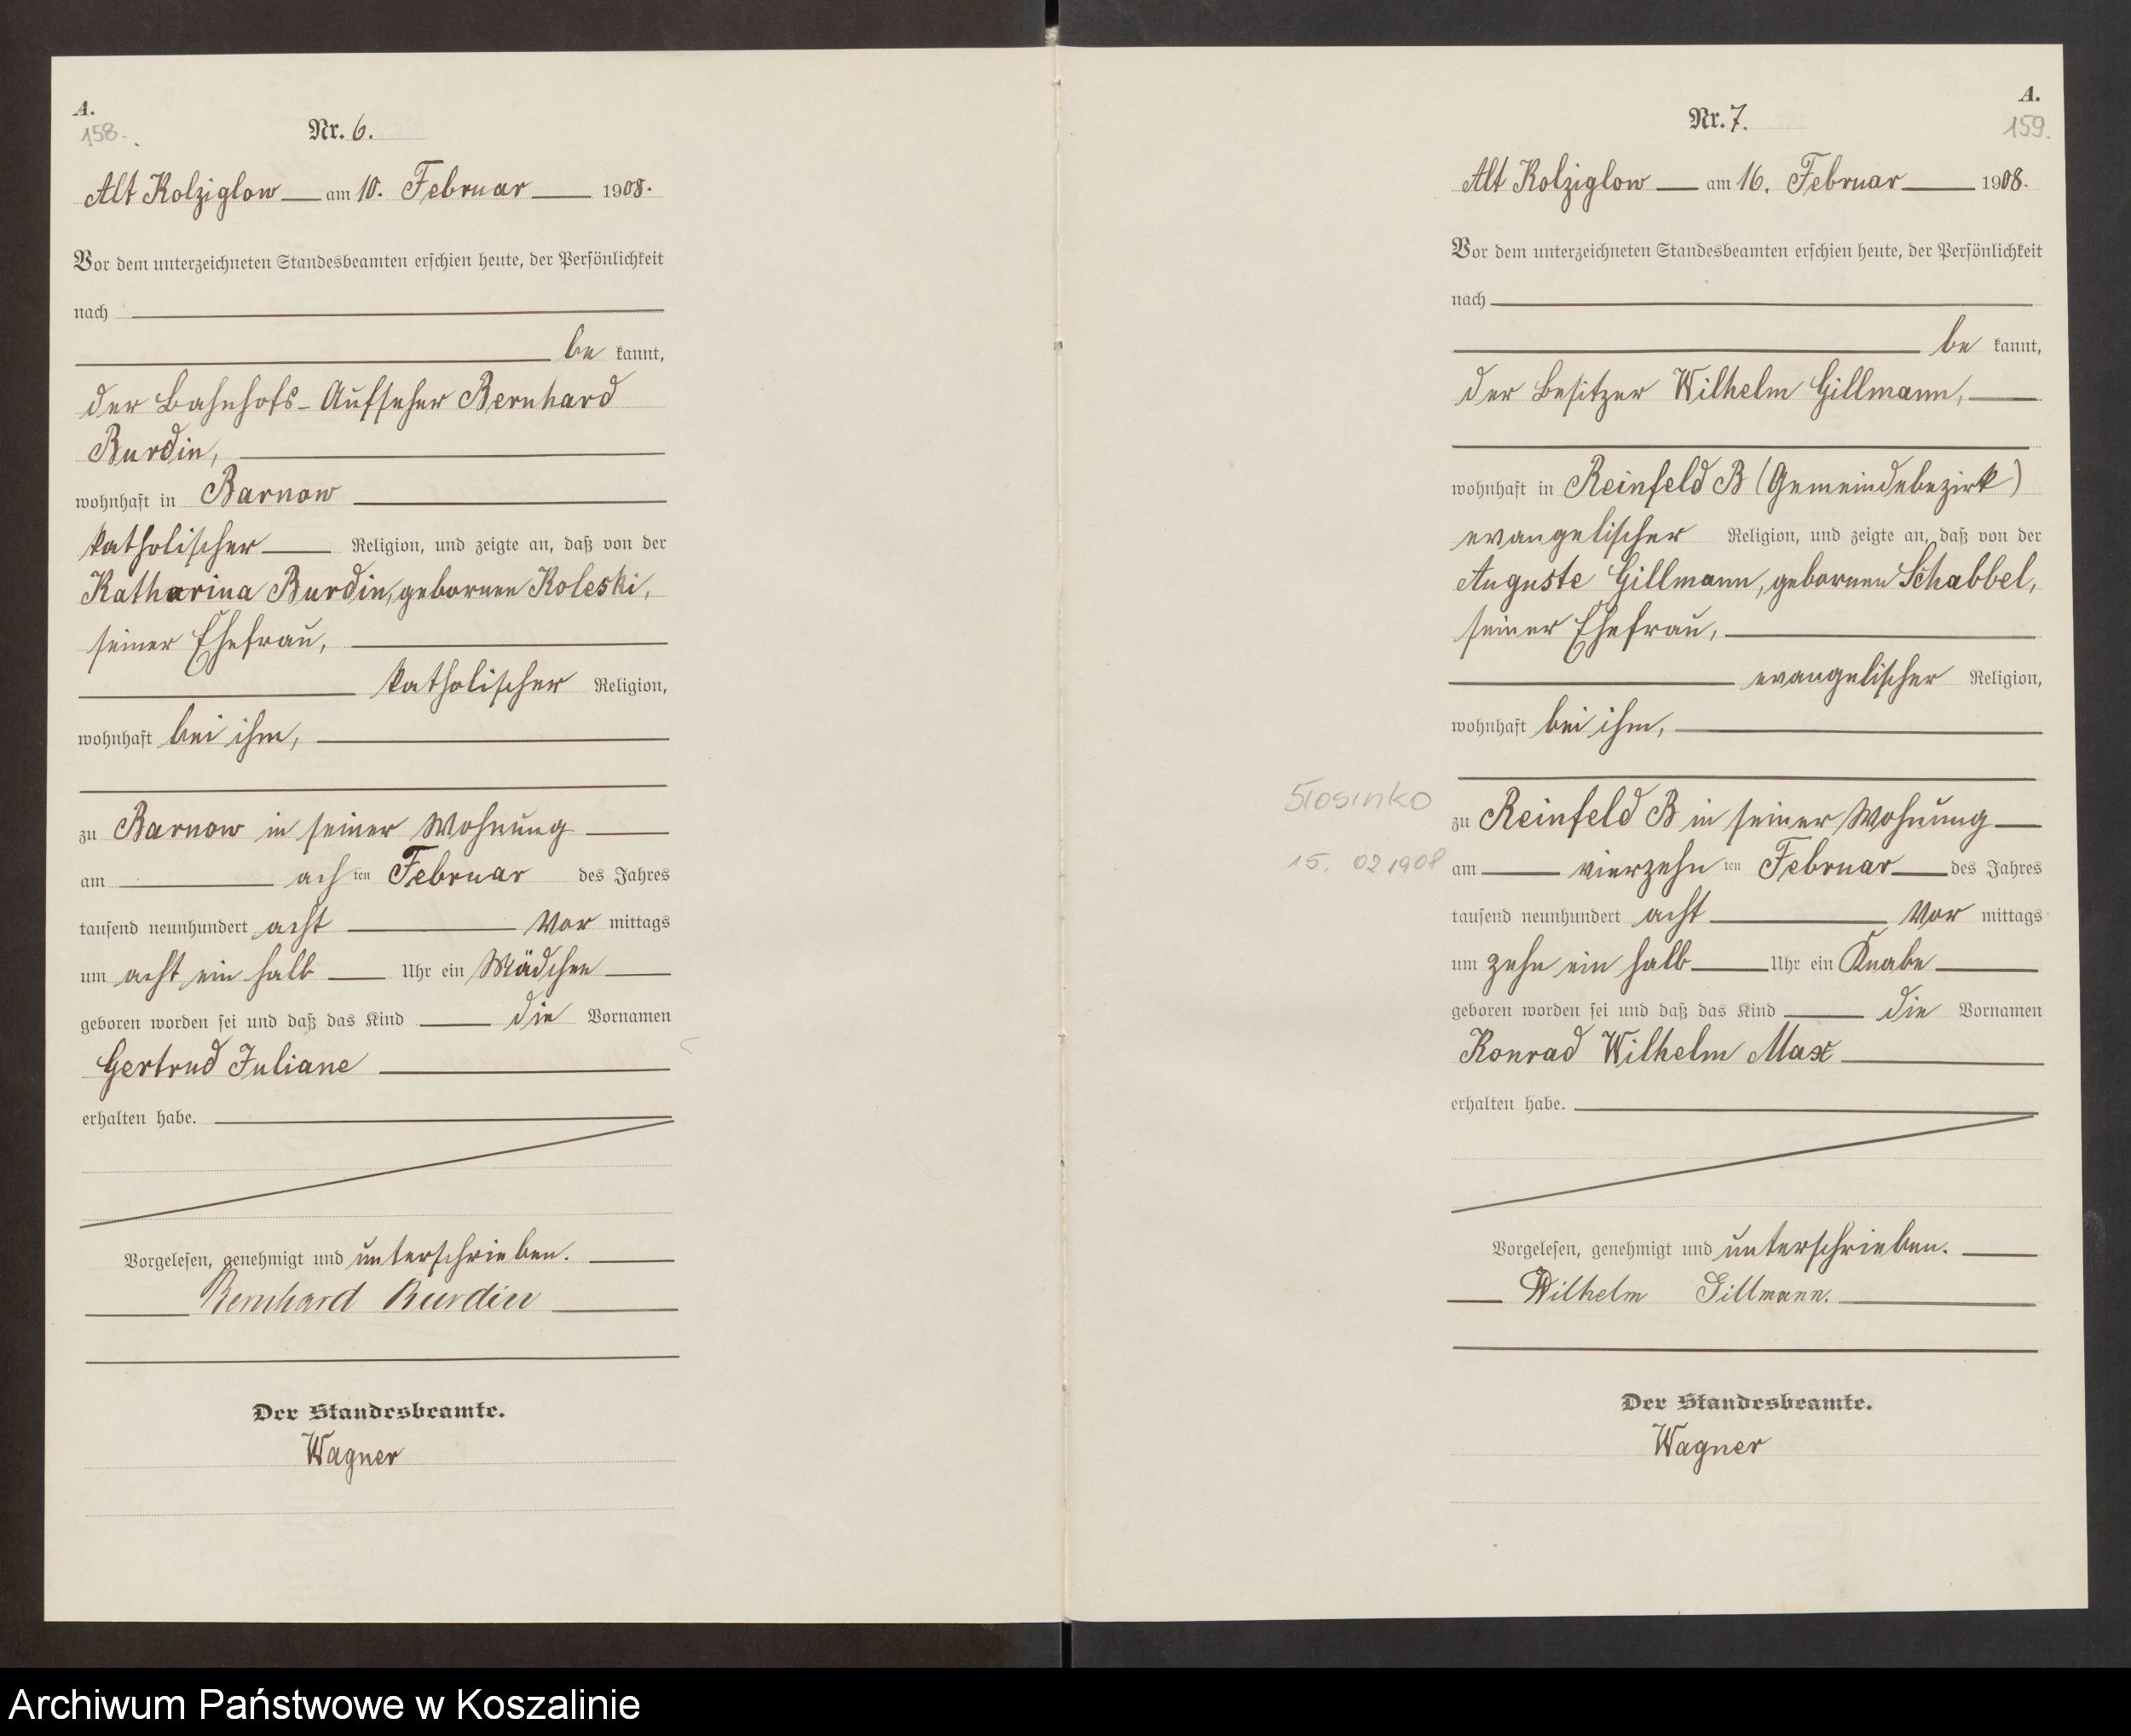 A.
158.
Nr. 6.
Alt Kolziglow am 10. Februar 1908.
Vor dem unterzeichneten Standesbeamten erschien heute, der Persönlichkeit
nach
be kannt,
der Bahnhofs-Aufseher Bernhard
Burdin,
wohnhaft in Barnow
katholischer Religion, und zeigte an, daß von der
Katharina Burdin, geborenen Koleski,
seiner Ehefrau,
katholischer Religion,
wohnhaft bei ihm,
zu Barnow in seiner Wohnung
am ach ten Februar des Jahres
tausend neunhundert acht Vor mittags
um acht ein halb Uhr ein Mädchen
geboren worden sei und daß das Kind die Vornamen
Gertrud Juliane
erhalten habe.
Vorgelesen, genehmigt und unterschrieben.
Bernhard Burdin
Der Standesbeamte.
Wagner
A.
159.
Nr. 7.
Alt Kolziglow am 16. Februar 1908.
Vor dem unterzeichneten Standesbeamten erschien heute, der Persönlichkeit
nach
be kannt,
der Besitzer Wilhelm Gillmann,
wohnhaft in Reinfeld B (Gemeindebezirk)
evangelischer Religion, und zeigte an, daß von der
Auguste Gillmann, geborenen Schabbel,
seiner Ehefrau,
evangelischer Religion,
wohnhaft bei ihm,
Słosinko
zu Reinfeld B in seiner Wohnung
15. 02 1908
am vierzehn ten Februar des Jahres
tausend neunhundert acht Vor mittags
um zehn ein halb Uhr ein Knabe
geboren worden sei und daß das Kind die Vornamen
Konrad Wilhelm Max
erhalten habe.
Vorgelesen, genehmigt und unterschrieben.
Wilhelm Gillmann.
Der Standesbeamte.
Wagner
Archiwum Państwowe w Koszalinie